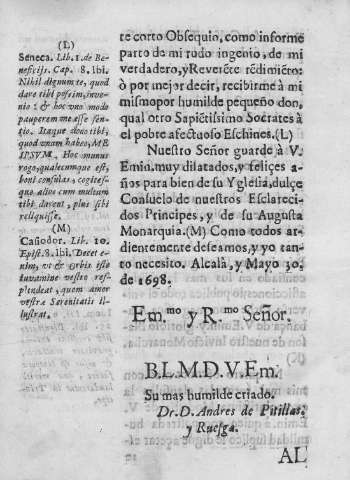 (L)
Seneca. Lib. 1. de Be-
neficijs. Cap. 8. ibi.
Nihil dignum te, quod
dare tibi possim, inve-
nio: & hoc uno modo
pauperem me esse sen-
tio. Itaque dono tibi,
quod unum habeo, ME
IPSUM. Hoc munus
rogo, qualecumque est,
boni consulas, cogites-
que alios cum multum
tibi darent, plus sibi
reliquisse.
(M)
Casiodor. Lib. 10.
Epist. 8. ibi. Decet e-
nim, vt & orbis iste
iuvamine vestro res-
plendeat, quem amor
vestræ Serenitatis il-
lustrat.
te corto Obsequio, como informe
parto de mi rudo ingenio, de mi
verdadero, y Reverēte rēdimiēto:
ò por mejor decir, recibirme à mi
mismo por humilde pequeño don,
qual otro Sapiētissimo Socrates à
el pobre afectuoso Eschines. (L)
Nuestro Señor guarde à V.
Emin. muy dilatados, y feliçes a-
ños para bien de su Yglesia, dulçe
Consuelo de nuestros Esclareci-
dos Principes, y de su Augusta
Monarquia. (M) Como todos ar-
dientemente deseamos, y yo tan-
to necesito. Alcalà, y Mayo 30.
de 1698.
Em.mo y R.mo Señor.
B.L.M.D.V.Em.
Su mas humilde criado.
Dr. D. Andres de Pitillas,
y Ruesga.
AL